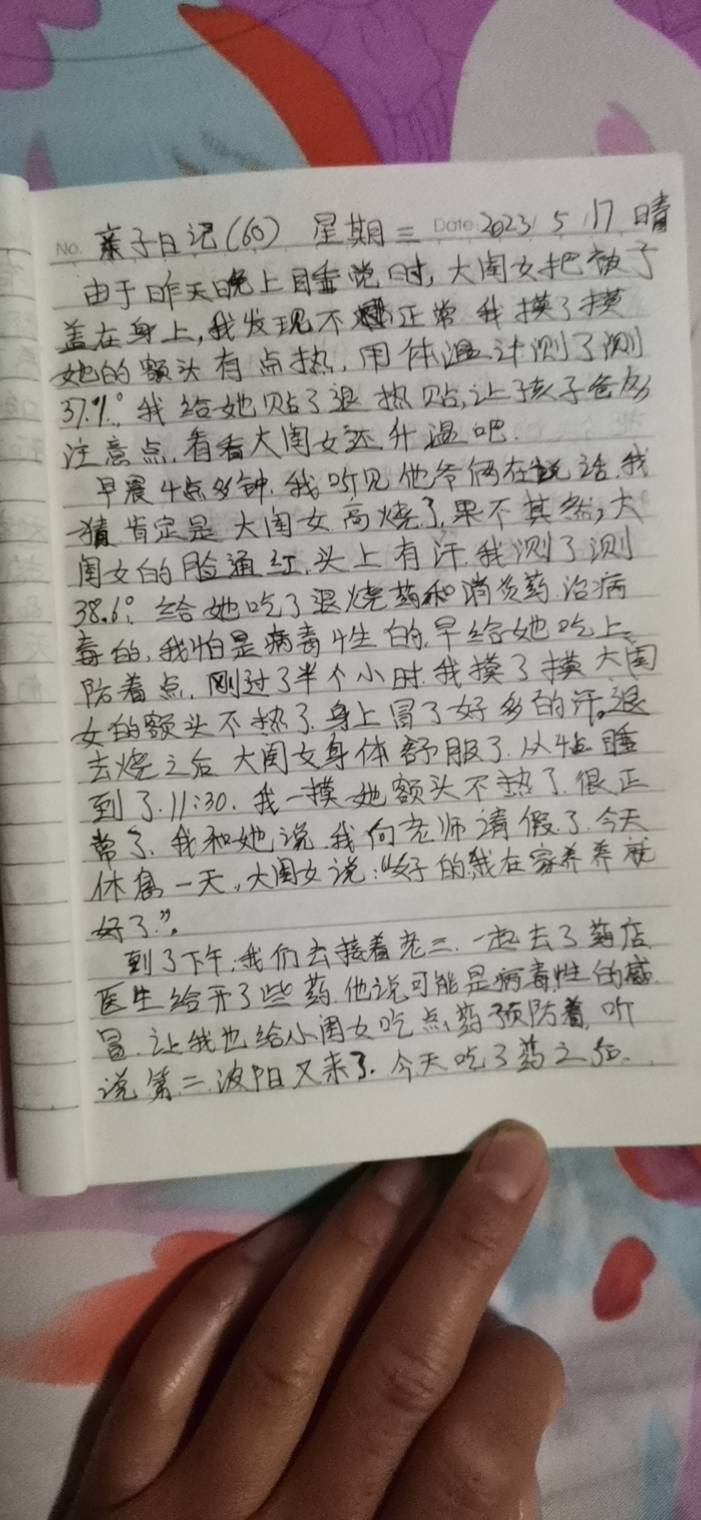 No. 亲子日记(60) 星期三 Date 2023 5 17 晴
由于昨天晚上睡觉时,大闺女把被子
盖在身上,我发现不正常 我摸了摸
她的额头有点热,用体温计测了测
37.9°,我给她贴了退热贴,让孩子爸多
注意点,看看大闺女还升温吧.
早晨4点多钟,我听见他爷俩在说话,我
猜肯定是大闺女高烧了,果不其然,大
闺女的脸通红,头上有汗,我测了测
38.6°,给她吃了退烧药和消炎药,治病
毒的,我怕是病毒性的,早给她吃上
防着点,刚过了半个小时,我摸了摸大闺
女的额头不热了,身上冒了好多的汗。退
去烧之后,大闺女身体舒服了,从4点睡
到了11:30,我一摸她额头不热了,很正
常了,我和她说,我向老师请假了,今天
休息一天,大闺女说:“好的,我在家养养就
好了”。
到了下午,我们去接着老三,一起去了药店,
医生给开了些药,他说可能是病毒性的感
冒,让我也给小闺女吃点药预防着,听
说第二波阳又来了,今天吃了药之后.